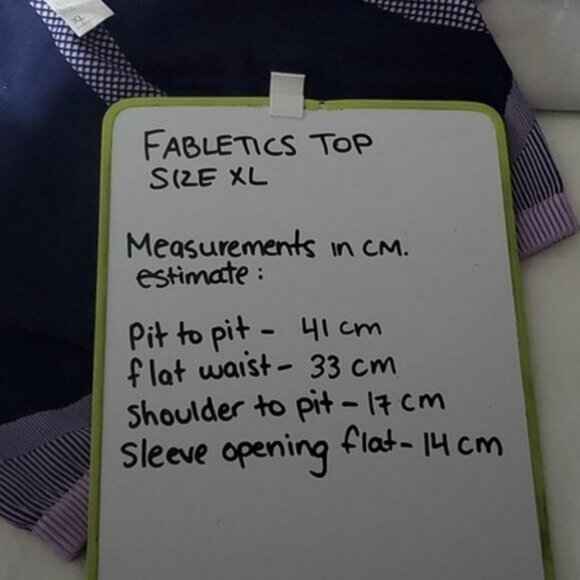 XL
FABLETICS TOP
SIZE XL
Measurements in CM.
estimate:
Pit to pit - 41 cm
flat waist - 33 cm
Shoulder to pit - 17 cm
Sleeve opening flat - 14 cm